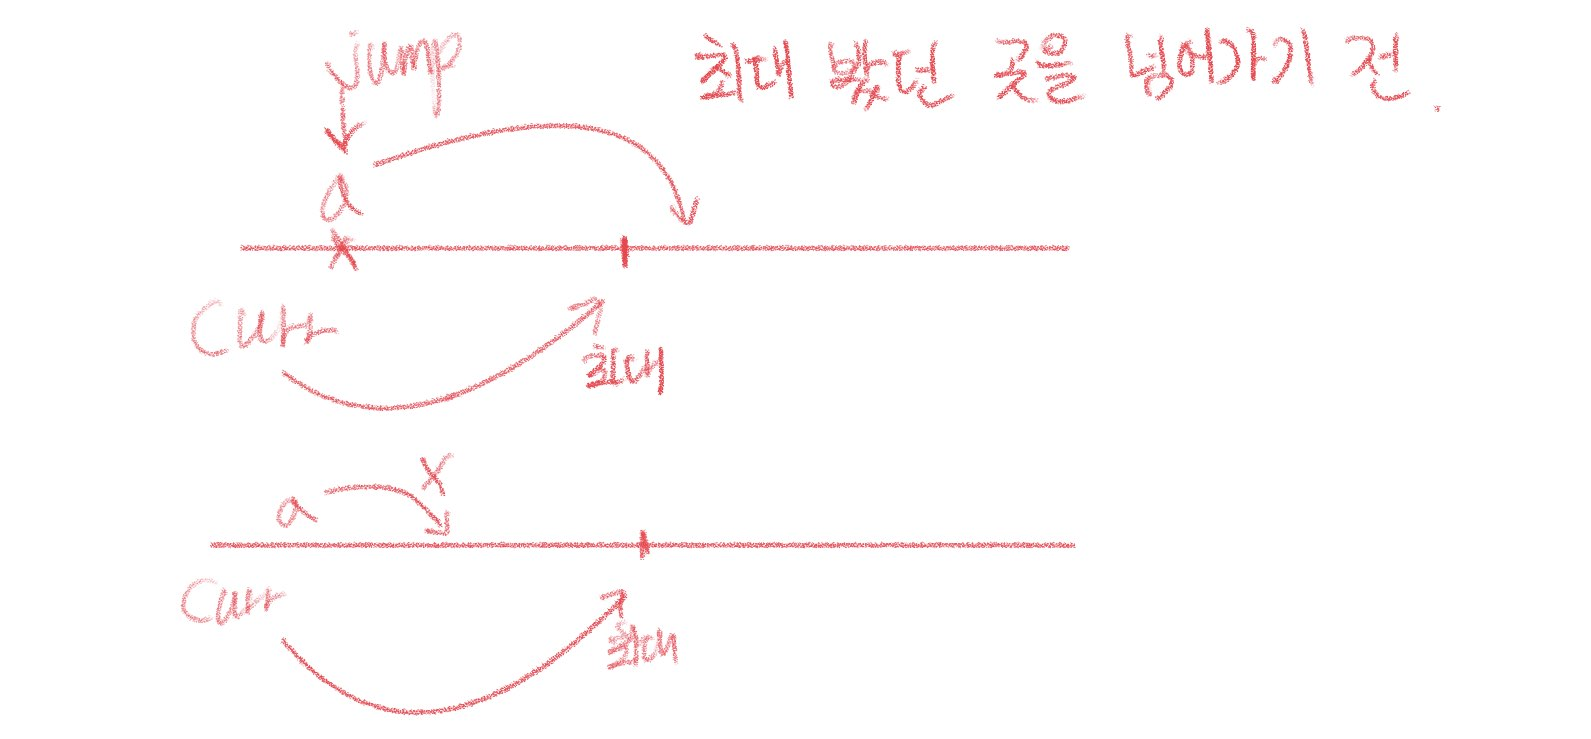 jump
최대 봤던 곳을 넘어가기 전.
a
x
curr
최대
x
a
curr
최대